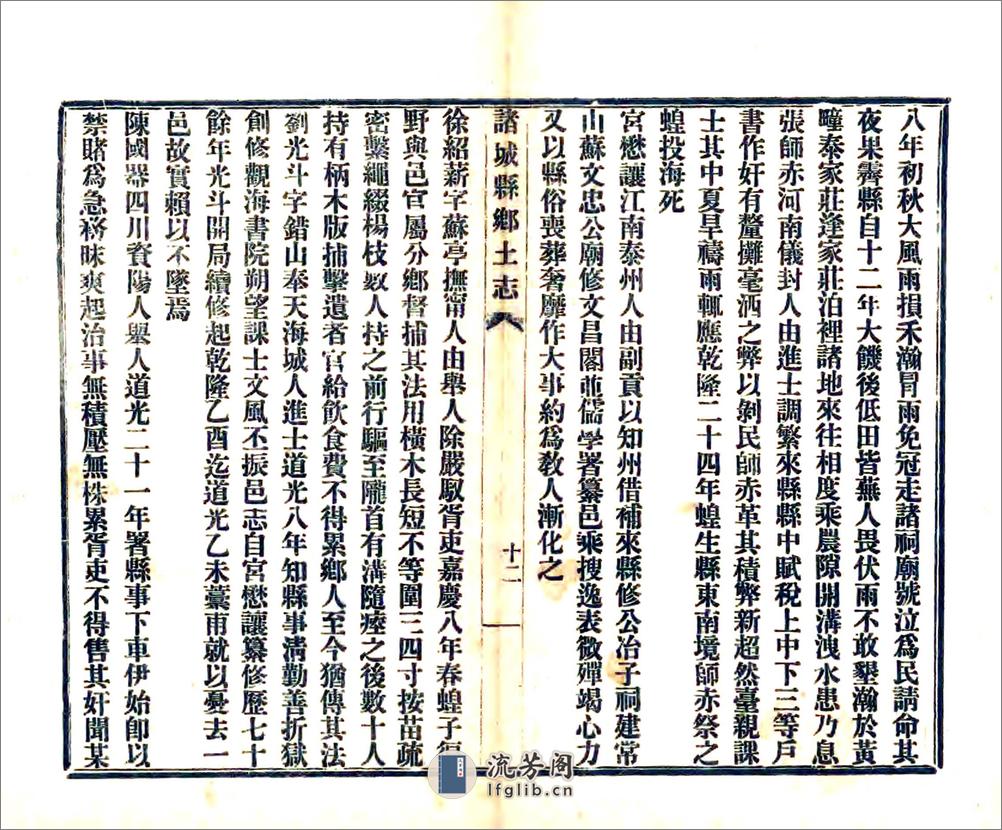 八年初秋大風雨損禾瀚冒雨免冠走諸祠廟號泣爲民請命其
夜果霽縣自十二年大饑後低田皆蕪人畏伏雨不敢墾瀚於黃
疃秦家莊逄家莊泊裡諸地來往相度乘農隙開溝洩水患乃息
張師赤河南儀封人由進士調繁來縣縣中賦稅上中下三等戶
書作奸有釐攤毫洒之弊以剝民師赤革其積弊新超然臺親課
士其中夏旱禱雨輒應乾隆二十四年蝗生縣東南境師赤祭之
蝗投海死
宮懋讓江南泰州人由副貢以知州借補來縣修公冶子祠建常
山蘇文忠公廟修文昌閣並儒學署纂邑乘搜逸表微殫竭心力
又以縣俗喪葬奢靡作大事約爲敎人漸化之
諸城縣鄉土志
十二
徐紹新字蘇亭撫甯人由舉人除嚴馭胥吏嘉慶八年春蝗子徧
野與邑官屬分鄉督捕其法用橫木長短不等圍三四寸按苗疏
密繫繩綴楊枝數人持之前行驅至隴首有溝隨瘞之後數十人
持有柄木版捕擊遺者官給飲食費不得累鄉人至今猶傳其法
劉光斗字錯山奉天海城人進士道光八年知縣事清勤善折獄
創修觀海書院朔望課士文風丕振邑志自宮懋讓纂修歷七十
餘年光斗開局續修起乾隆乙酉迄道光乙未藁甫就以憂去一
邑故實賴以不墜焉
陳國器四川資陽人舉人道光二十一年署縣事下車伊始卽以
禁賭爲急務昧爽起治事無積壓無株累胥吏不得售其奸聞某
流芳阁
lfglib.cn